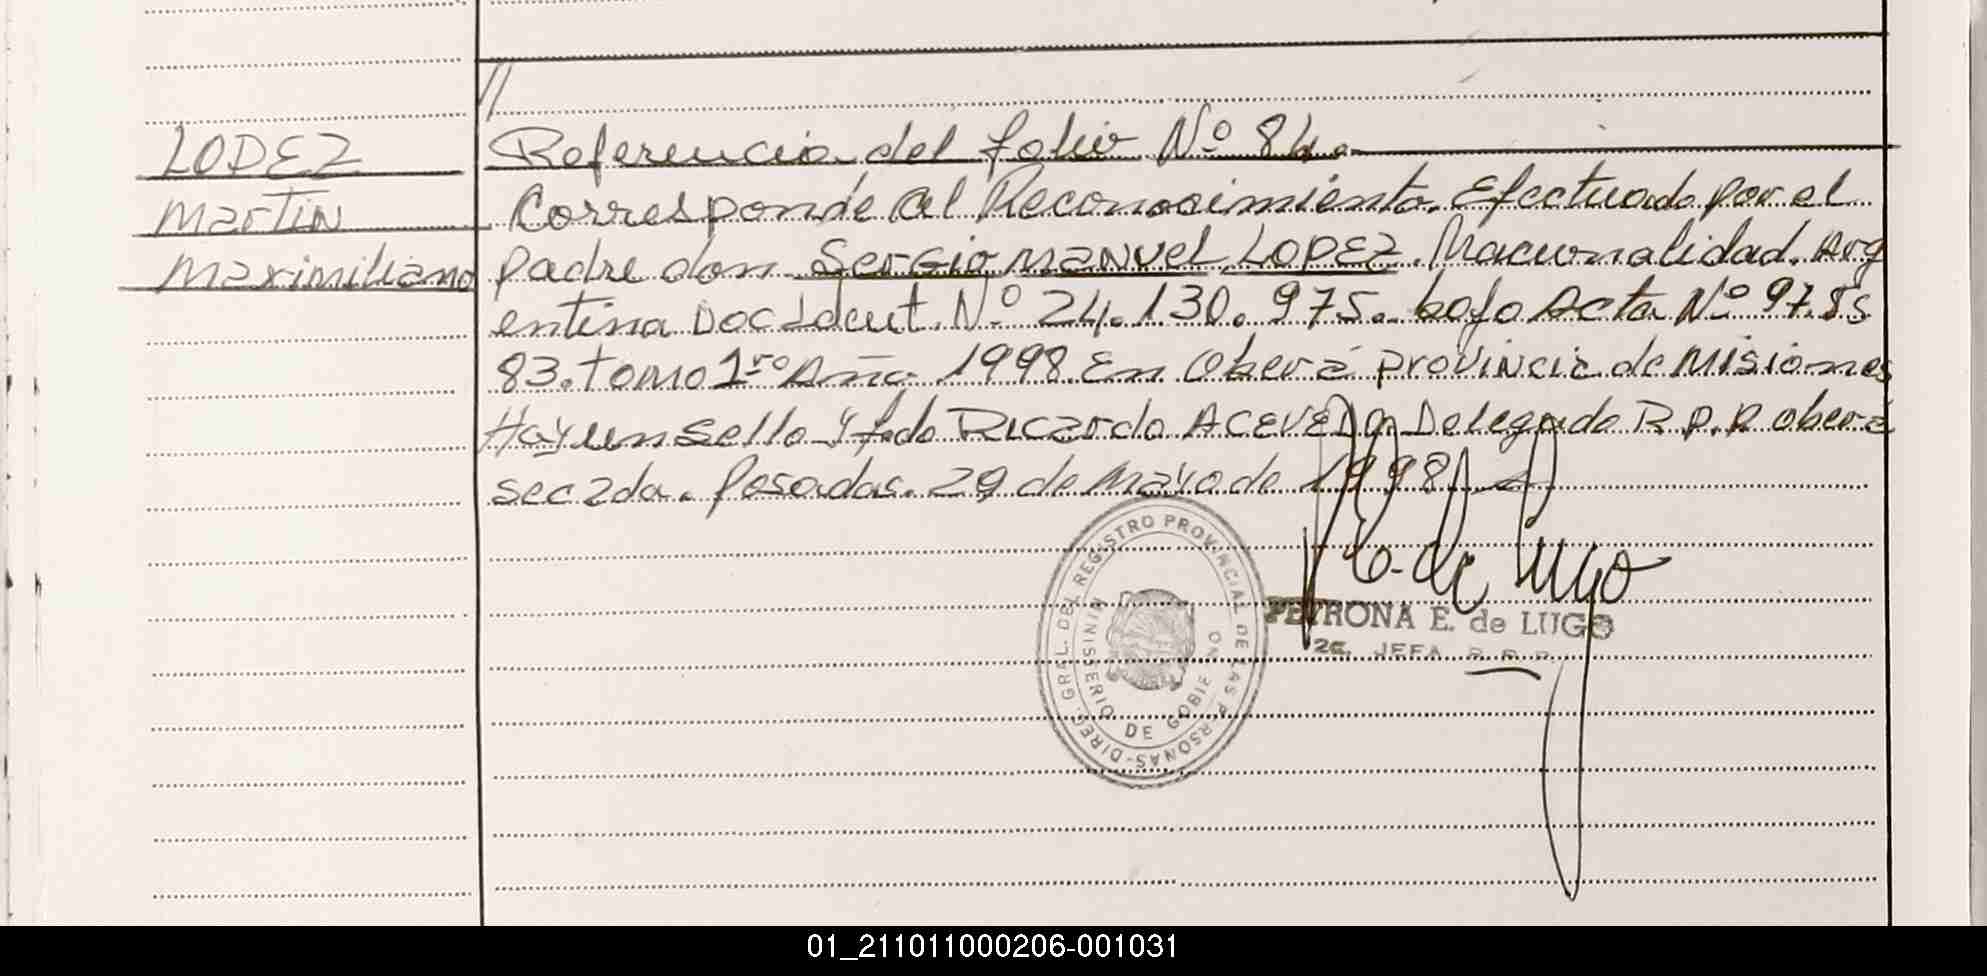 //
LOPEZ
Martin
Maximiliano
Referencia del folio Nº 84.
Corresponde al Reconocimiento. Efectuado por el
padre don Sergio Manuel LOPEZ. Nacionalidad. Arg
entina Doc Ident. Nº 24.130.975. bajo Acta Nº 97.Fs
83. tomo 1ro Año 1998. En Oberá provincia de Misiones
Hay un sello y fdo Ricardo ACEVEDO. Delegado R.P.P Oberá
sec 2da. Posadas. 29 de Mayo de 1998
E. de Lugo
PETRONA E. de LUGO
2a. JEFA R.P.P.
DIREC. GRAL. DEL REGISTRO PROVINCIAL DE LAS PERSONAS-
MINISTERIO DE GOBIERNO
01_211011000206-001031